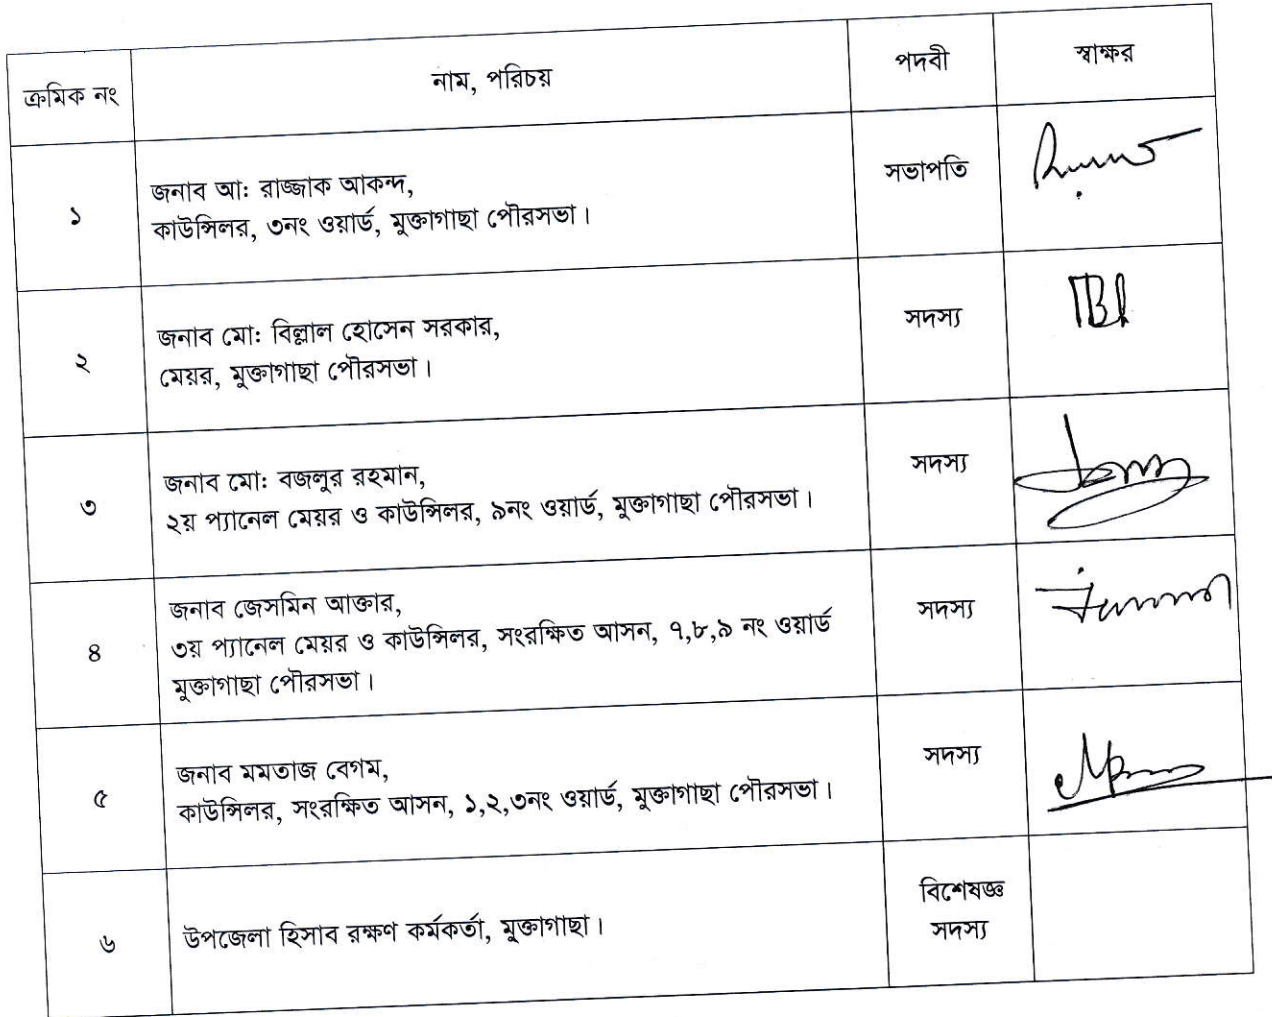 ক্রমিক নং নাম, পরিচয় পদবী স্বাক্ষর
১ জনাব আঃ রাজ্জাক আকন্দ, সভাপতি
কাউন্সিলর, ৩নং ওয়ার্ড, মুক্তাগাছা পৌরসভা।
২ জনাব মোঃ বিল্লাল হোসেন সরকার, সদস্য
মেয়র, মুক্তাগাছা পৌরসভা।
৩ জনাব মোঃ বজলুর রহমান, সদস্য
২য় প্যানেল মেয়র ও কাউন্সিলর, ৯নং ওয়ার্ড, মুক্তাগাছা পৌরসভা।
৪ জনাব জেসমিন আক্তার, সদস্য
৩য় প্যানেল মেয়র ও কাউন্সিলর, সংরক্ষিত আসন, ৭,৮,৯ নং ওয়ার্ড
মুক্তাগাছা পৌরসভা।
৫ জনাব মমতাজ বেগম, সদস্য
কাউন্সিলর, সংরক্ষিত আসন, ১,২,৩নং ওয়ার্ড, মুক্তাগাছা পৌরসভা।
৬ উপজেলা হিসাব রক্ষণ কর্মকর্তা, মুক্তাগাছা। বিশেষজ্ঞ
সদস্য